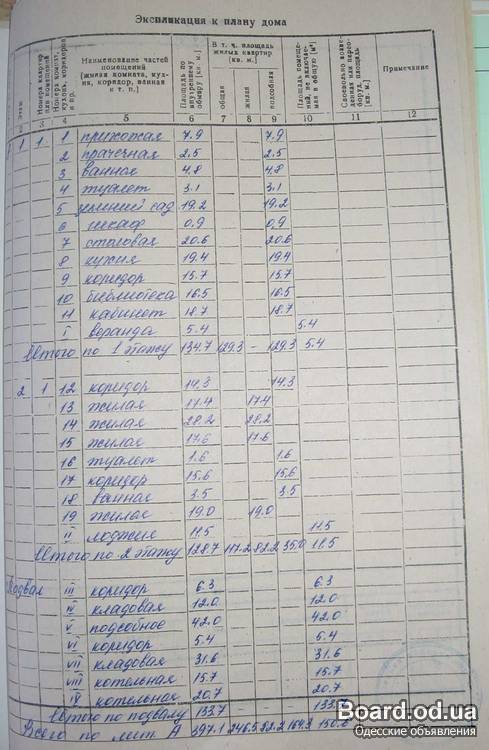 Экспликация к плану дома
Этаж
Номера квартир или помещений
Номера комнат, кухонь, коридоров и пр.
Наименование частей помещений (жилая комната, кухня, коридор, ванная и т. п.)
Площадь по внутреннему обмеру [кв. м.]
В т. ч. площадь жилых квартир (кв. м.)
общая
жилая
подсобная
Примечание
3 4 5 6 7 8 9 10 11 12
1 1 1 прихожая 7.9 7.9
2 прачечная 2.5 2.5
3 ванная 4.8 4.8
4 туалет 3.1 3.1
5 зимний сад 19.2 19.2
6 шкаф 0.9 0.9
7 столовая 20.6 20.6
8 кухня 19.4 19.4
9 коридор 15.7 15.7
10 библиотека 16.5 16.5
11 кабинет 18.7 18.7
I веранда 5.4 5.4
Итого по 1 этажу 134.7 129.3 - 129.3 5.4
2 1 12 коридор 14.3 14.3
13 жилая 17.4 17.4
14 жилая 28.2 28.2
15 жилая 17.6 17.6
16 туалет 1.6 1.6
17 коридор 15.6 15.6
18 ванная 3.5 3.5
19 жилая 19.0 19.0
II лоджия 11.5 11.5
Итого по 2 этажу 128.7 117.2 82.2 35.0 11.5
Подвал III коридор 6.3 6.3
IV кладовая 12.0 12.0
V подсобное 42.0 42.0
VI коридор 5.4 5.4
VII кладовая 31.6 31.6
VIII котельная 15.7 15.7
IX котельная 20.7 20.7
Итого по подвалу 133.7 133.
Всего по лит А 397.1 246.5 82.2 164.3 150.6
Board.od.ua
Одесские объявления